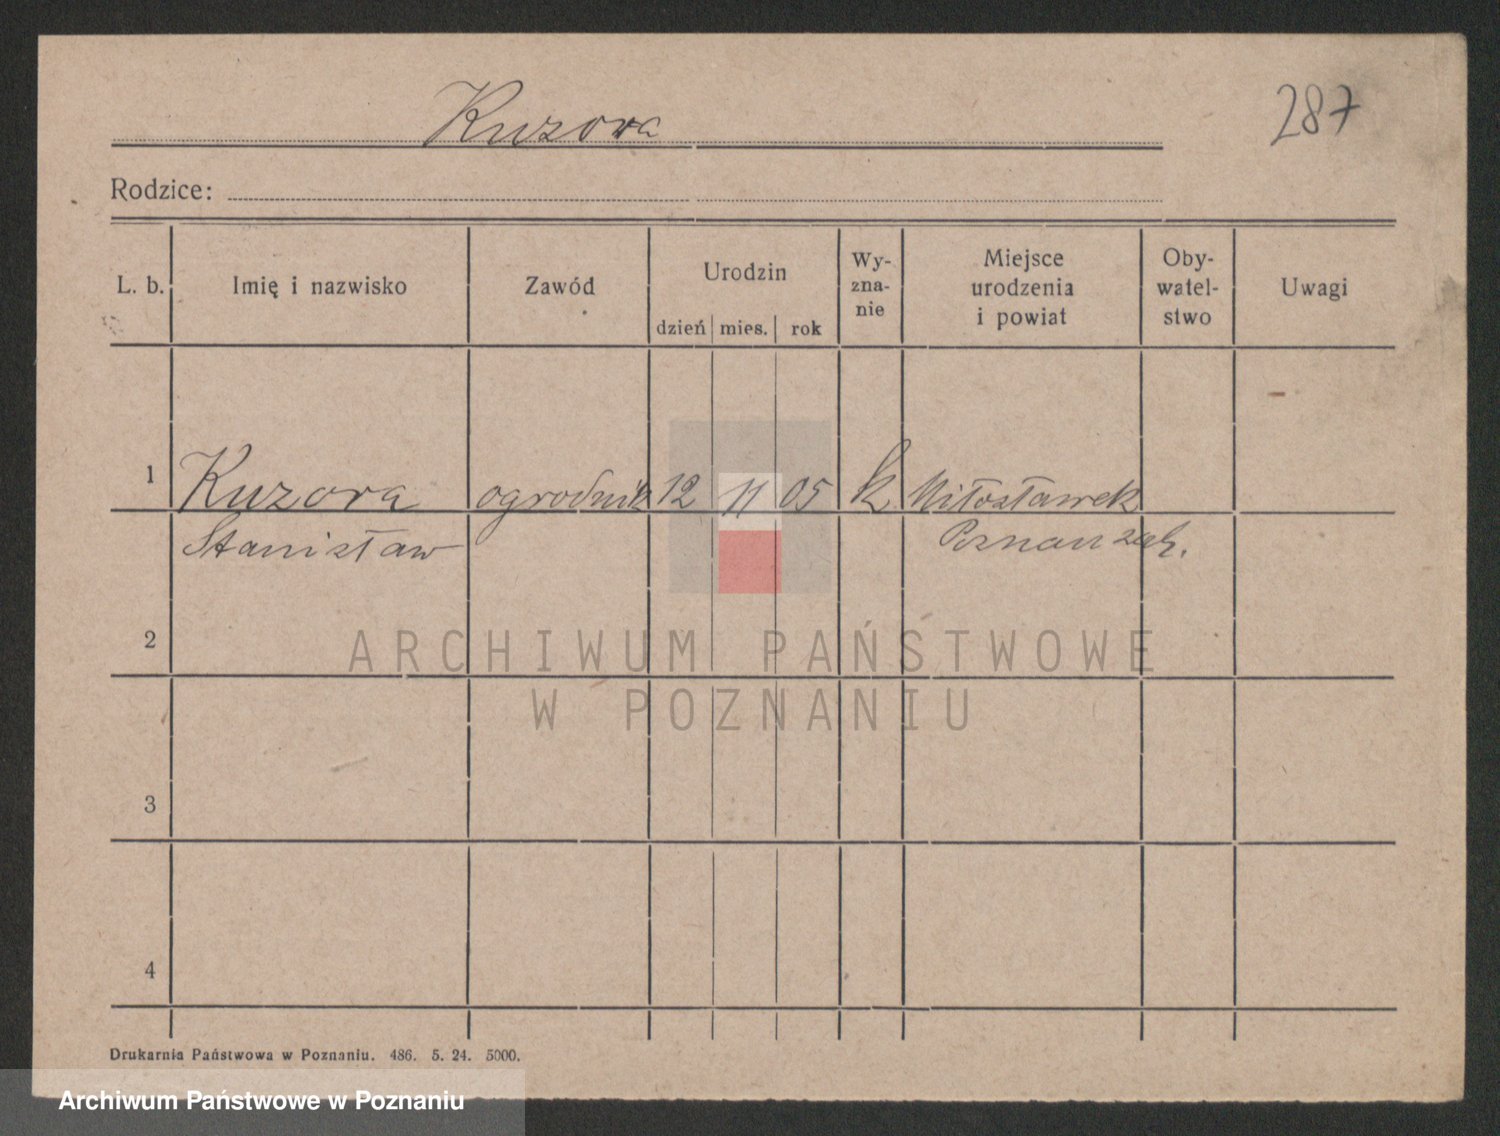 Kuzora
287
Rodzice:
L. b.
Imię i nazwisko
Zawód
Urodzin
dzień mies. rok
Wy-
zna-
nie
Miejsce
urodzenia
i powiat
Oby-
watel-
stwo
Uwagi
1 Kuzora ogrodnik 12 11 05 k Miłosławek
Stanisław Poznań zach.
2
3
4
ARCHIWUM PAŃSTWOWE
W POZNANIU
Drukarnia Państwowa w Poznaniu. 486. 5. 24. 5000.
Archiwum Państwowe w Poznaniu